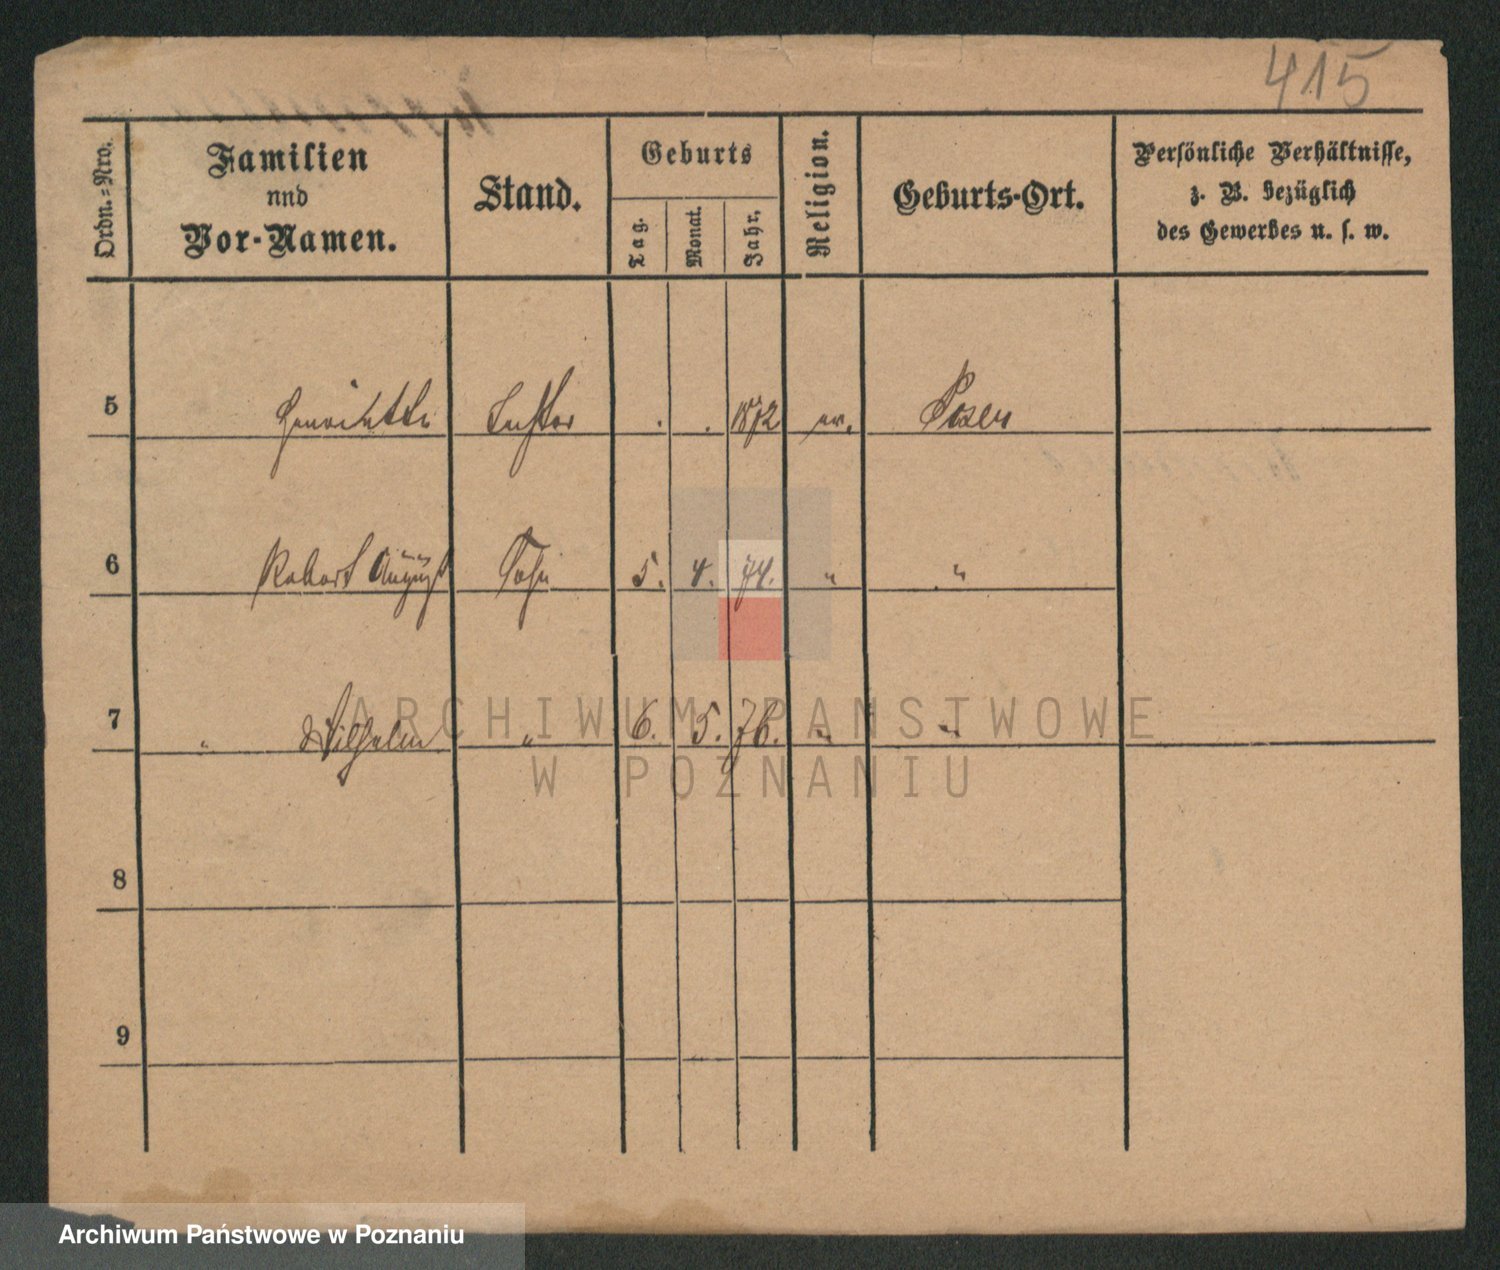 415
Ordn.=Nro.
Familien
nnd
Vor-Namen.
Stand.
Geburts
Tag.
Monat.
Jahr.
Religion.
Geburts-Ort.
Persönliche Verhältnisse,
z. B. bezüglich
des Gewerbes u. s. w.
5 Henriette Tochter . . 1872 ev. Posen
6 Robert August Sohn 5. 4. 74. " "
7 " Wilhelm " 6. 5. 76. " "
8
9
ARCHIWUM PAŃSTWOWE
W POZNANIU
Archiwum Państwowe w Poznaniu